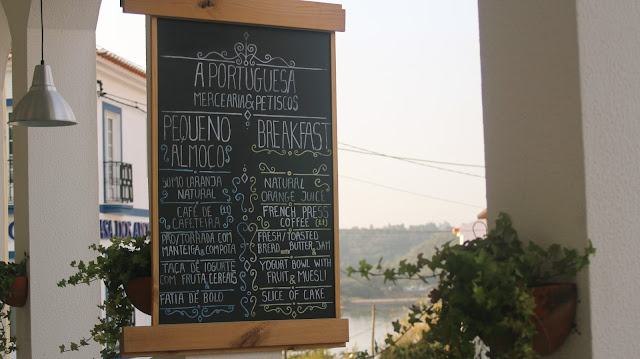 A PORTUGUESA
MERCEARIA & PETISCOS
PEQUENO
ALMOÇO
SUMO LARANJA
NATURAL
CAFÉ DE
CAFETEIRA
PÃO/TORRADA COM
MANTEIGA & COMPOTA
TAÇA DE IOGURTE
COM FRUTA & CEREAIS
&
FATIA DE BOLO
BREAKFAST
NATURAL
ORANGE JUICE
FRENCH PRESS
COFFEE
FRESH/TOASTED
BREAD, BUTTER, & JAM
YOGURT BOWL WITH
FRUIT & MUESLI
&
SLICE OF CAKE